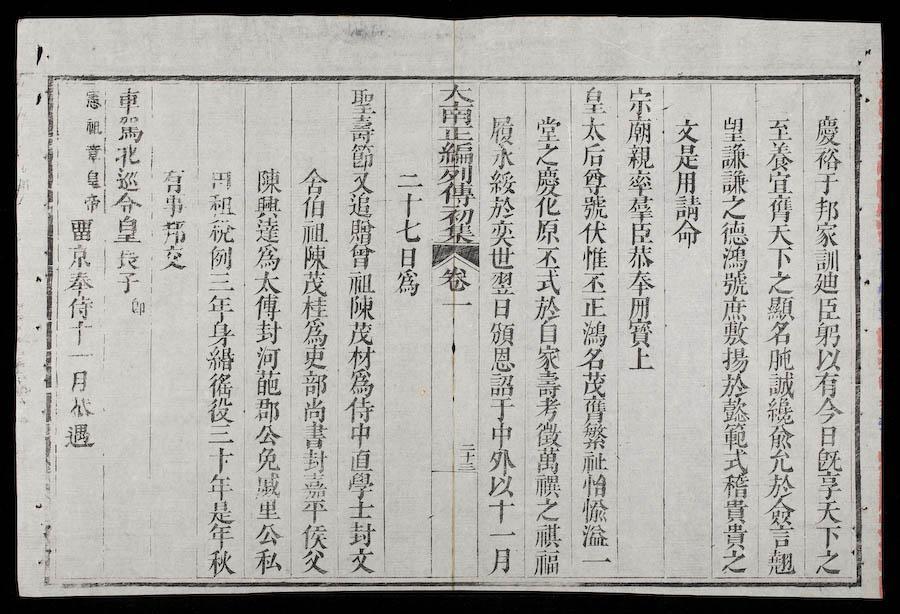 慶裕于邦家訓廸臣躬以有今日旣享天下之
至養宜膺天下之顯名肫誠纔僉允於僉言翹
望謙謙之德鴻號庶敷揚於懿範式稽貴貴之
文是用請命
宗廟親率羣臣恭奉冊寶上
皇太后尊號伏惟丕正鴻名茂膺繁祉怡愉溢一
堂之慶化原丕式於自家壽考徵萬禩之祺福
履永綏於奕世翌日頒恩詔于中外以十一月
二十七日爲
大南正編列傳初集
卷一
二十三
聖壽節又追贈曾祖陳茂材爲侍中直學士封文
舍伯祖陳茂桂爲吏部尚書封嘉平侯父
陳興達爲太傅封河葩郡公免戚里公私
田租稅例三年身緡徭役三十年是年秋
有事邦交
車駕北巡令皇長子卽
憲祖章皇帝
畱京奉侍十一月恭遇